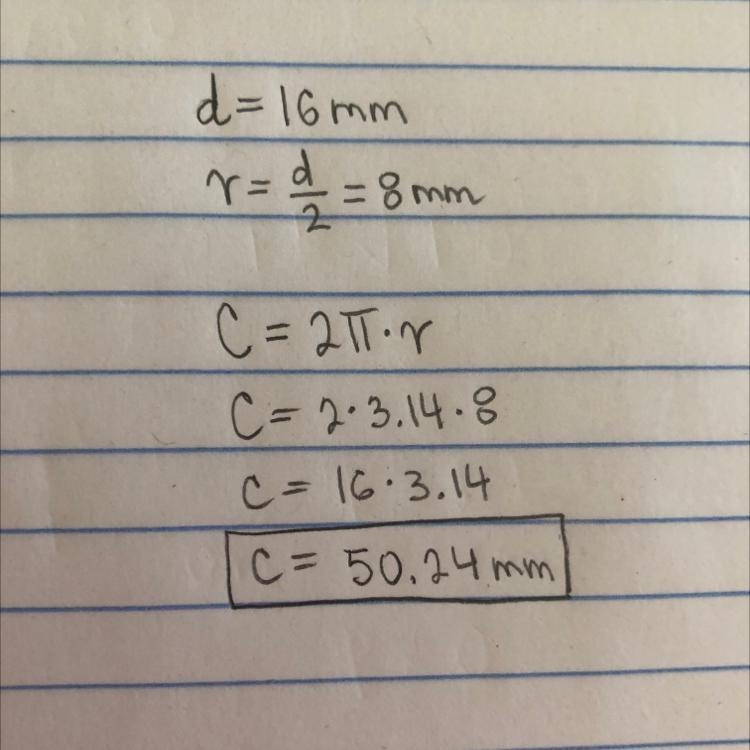 d = 16 mm
r = d/2 = 8 mm
C = 2π · r
C = 2 · 3.14 · 8
C = 16 · 3.14
C = 50.24 mm